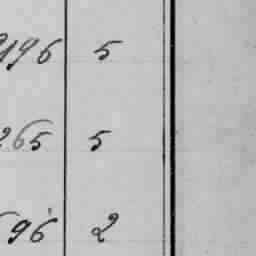 196 5
265 5
96 2